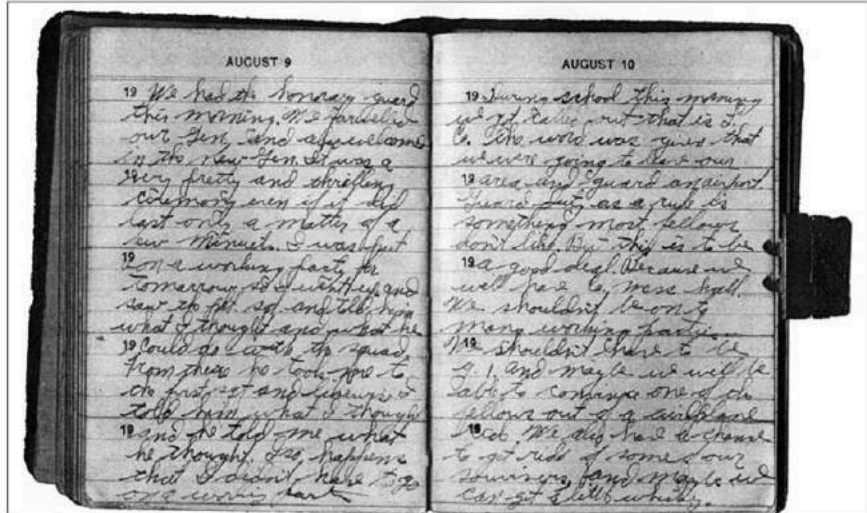 AUGUST 9
19 We had the honorary guard
this morning. We farwelled
our Gen. and welcome
in the new Gen. It was a
very pretty and thrilling
ceremony even if it did
last only a matter of a
few minuets. I was put
19 on a working party for
tomarrow, so I went up and
saw the plt sgt and told him
what I thought and what he
19 could do with the squad,
from there he took me to
the first sgt and I
told him what I thought
19 and he told me what
he thought. I so happens
that I didn't have to go
on a party
AUGUST 10
19 During school this morning
we got called out that is I.
Co. The word was given that
we were going to leave our
19 area and guard an airport.
Guard duty as a rule is
something most fellows
don't like. But this is to be
19 a good deal. Because we
will have Co. mess hall.
We shouldn't be on to
many working parties.
19 We shouldn't have to be
g. i. and maybe we will be
able to convince one of the
fellows out of a airplane
19 We also have a chance
to get rid of some of our
souviners, and maybe we
can get a little whisky.